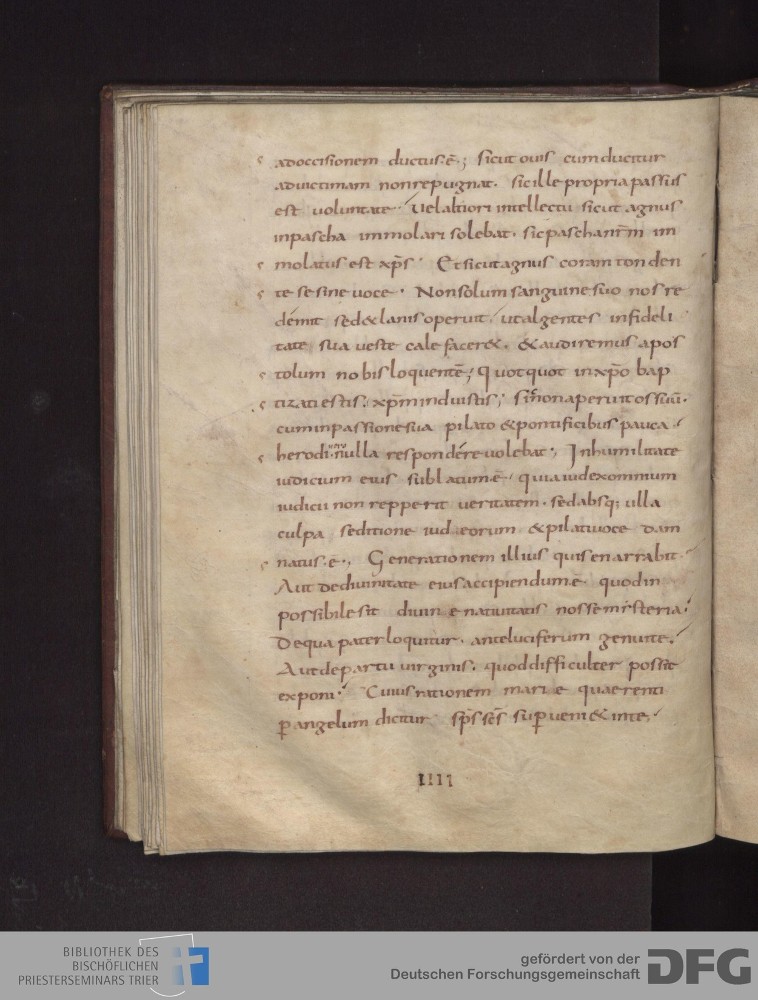 adoccisionem ductus.ē; sicut ouis cum ducitur
aduictimam non repugnat. sic ille propria passus
est uoluntate. Uel altiori intellectu sicut agnus
inpascha immolari solebat. sic pascha nr̄m im
molatus est xp̄s. Et sicut agnus coram tonden
te se sine uoce. Non solum sanguine suo nos re
démit sed & lanis operuit. ut algentes infideli
tate sua ueste calefacer&. & audiremus apos
tolum nobis loquentē; Quotquot in xp̄o bap
tizati estis. xp̄m induistis; Siue non aperuit os suū.
cum in passione sua pilato & pontificibus pauca.
herodi. uero nulla respondére uolebat; In humilitate
iudicium eius sublatum.ē. quia iudex omnium
iudicii non repperit ueritatem. sed absq; ulla
culpa seditione iudæorum & pilati uoce dam
natus.ē.; Generationem illius quis enarrabit.
Aut de diuinitate eius accipiendum.ē. quod in
possibile sit diuinæ natiuitatis nosse misteria.
De qua pater loquitur. ante luciferum genui te.
Aut de partu uirginis. quod difficulter possit
exponi. Cuius rationem mariæ quaerenti
p̱ angelum dicitur. sp̄s sc̄s sup̱ueni& in te,
IIII
BIBLIOTHEK DES
BISCHÖFLICHEN
PRIESTERSEMINARS TRIER
gefördert von der
Deutschen Forschungsgemeinschaft
DFG